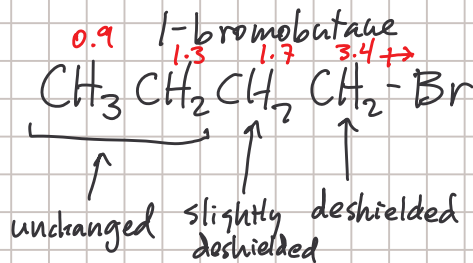 1-bromobutane
0.9 1.3 1.7 3.4
CH3 CH2 CH2 CH2-Br
unchanged slightly deshielded deshielded